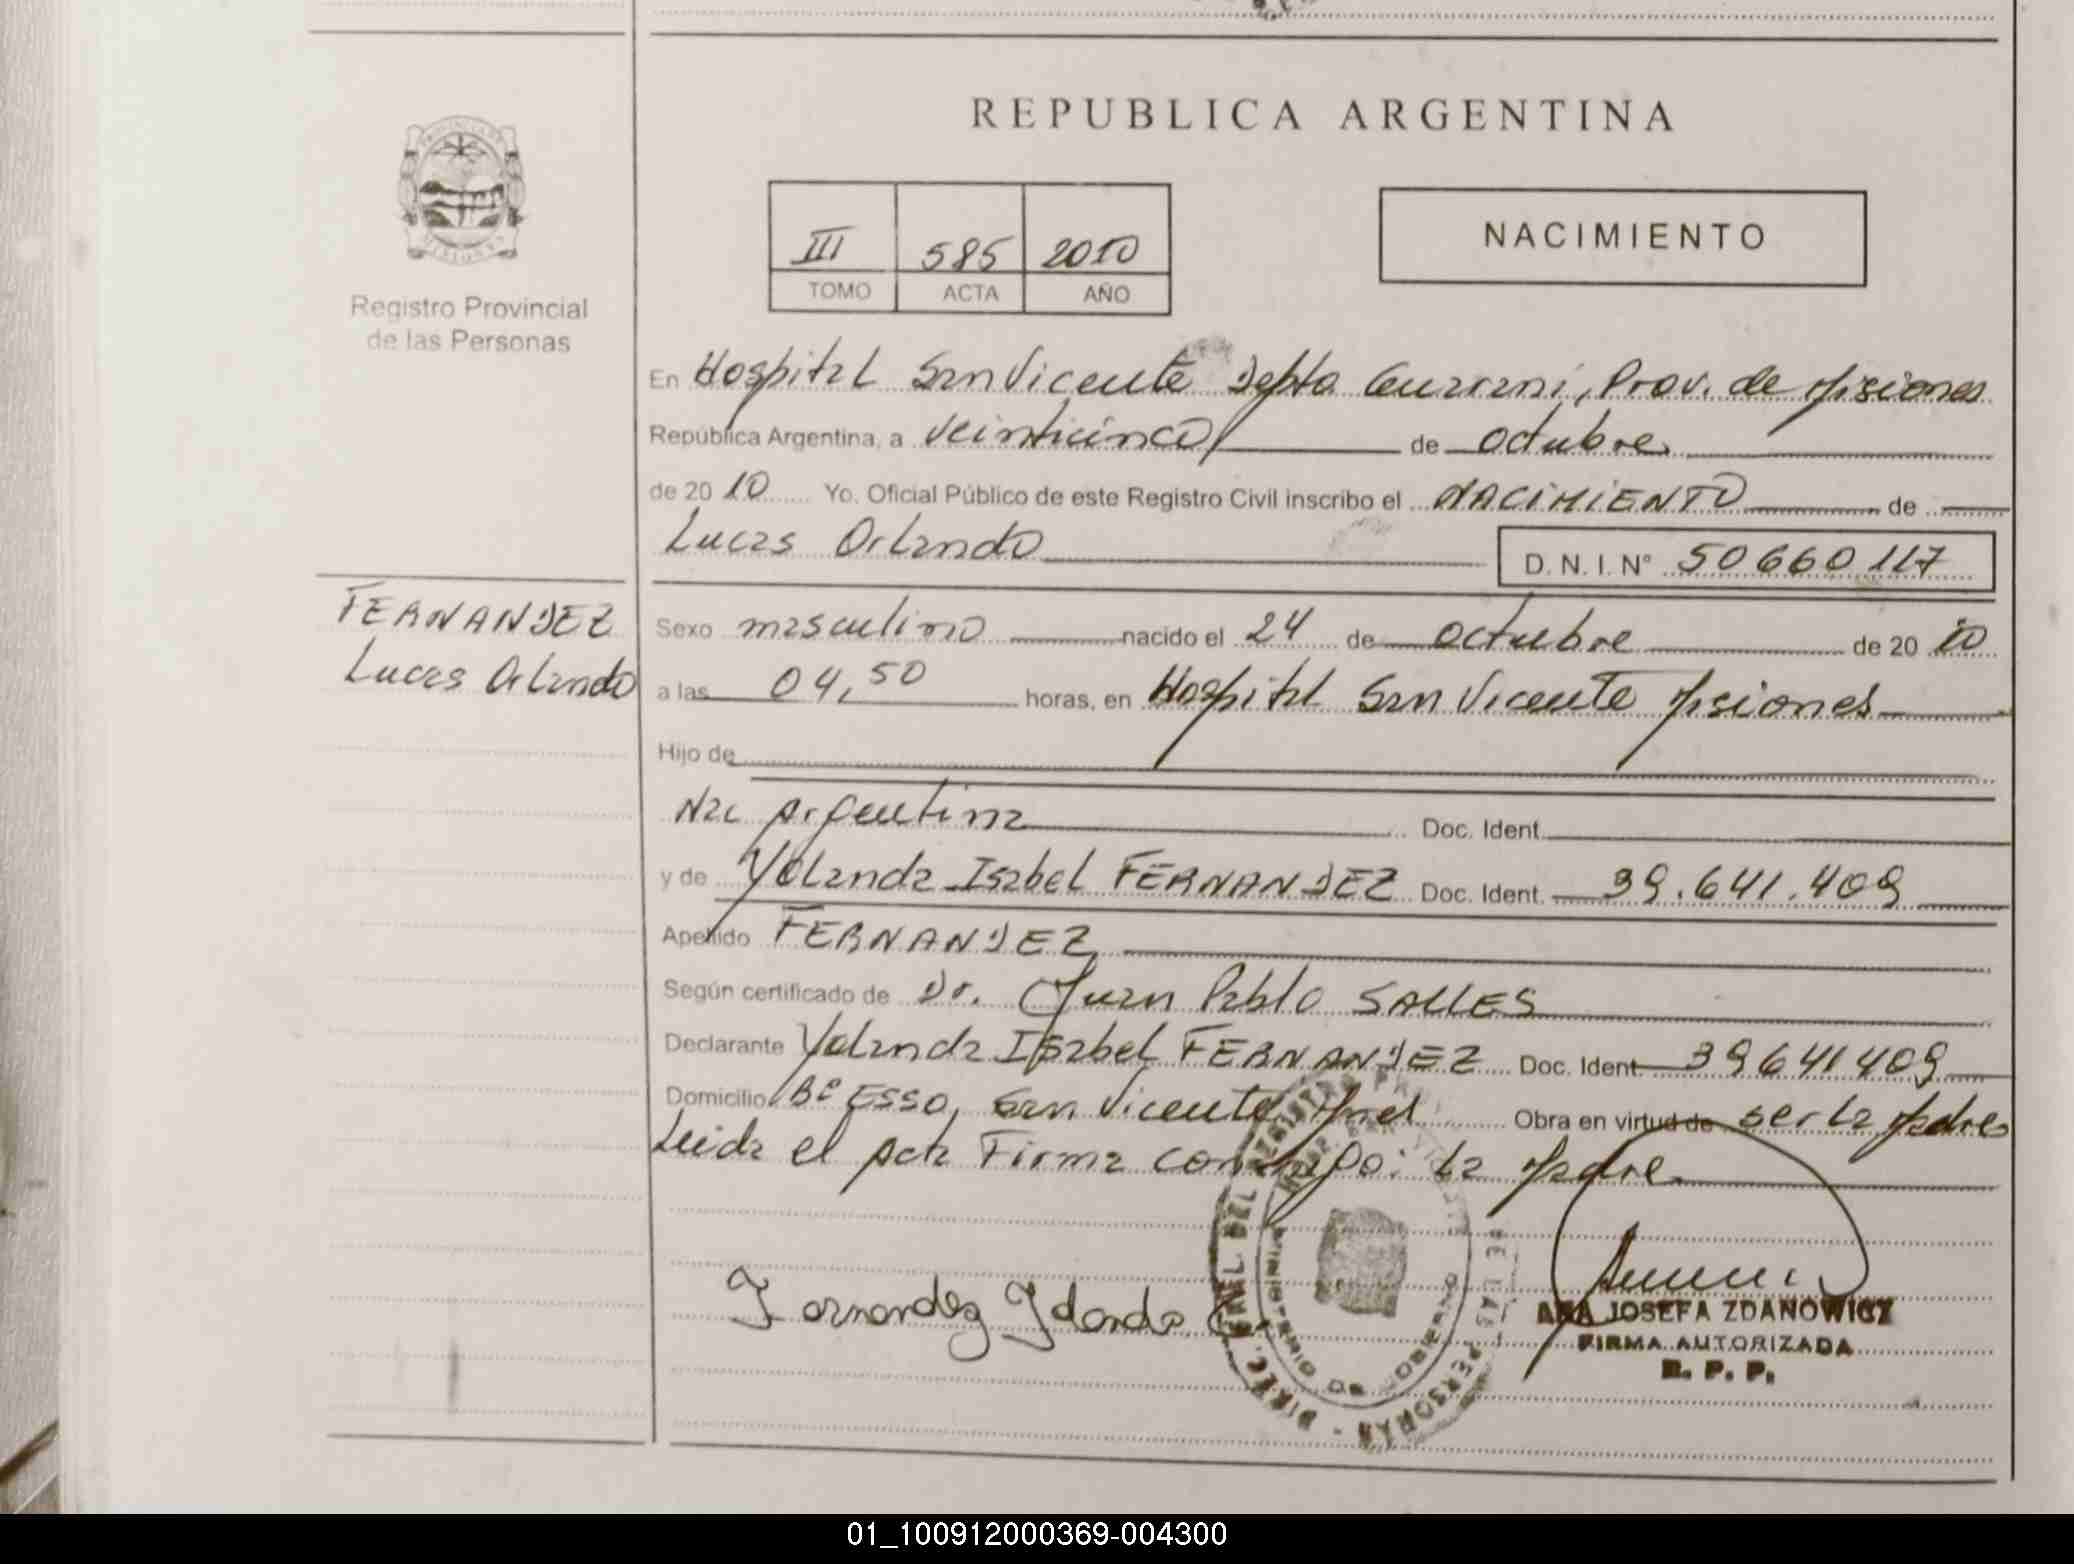 REPUBLICA ARGENTINA
III 585 2010
TOMO ACTA AÑO
NACIMIENTO
Registro Provincial
de las Personas
En Hospital San Vicente Depto Guarani, Prov. de Misiones
República Argentina, a veinticinco de octubre
de 20 10 Yo. Oficial Público de este Registro Civil inscribo el NACIMIENTO de
Lucas Orlando
D. N. I. N° 50660117
FERNANDEZ
Lucas Orlando
Sexo masculino nacido el 24 de octubre de 20 10
a las 04,50 horas, en Hospital San Vicente Misiones
Hijo de
Nac Argentina Doc. Ident.
y de Yolanda Isabel FERNANDEZ Doc. Ident. 39.641.409
Apellido FERNANDEZ
Según certificado de Dr. Juan Pablo SALLES
Declarante Yolanda Isabel FERNANDEZ Doc. Ident 39641409
Domicilio Bº ESSO, San Vicente Mnes Obra en virtud de ser la Madre
Leida el Acta Firma conmigo: la Madre
Fernandez Yolanda
DIREC. GRAL. DEL REGISTRO PROV. DE LAS PERSONAS
MINISTERIO DE GOBIERNO
ANA JOSEFA ZDANOWICZ
FIRMA AUTORIZADA
R. P. P.
01_100912000369-004300